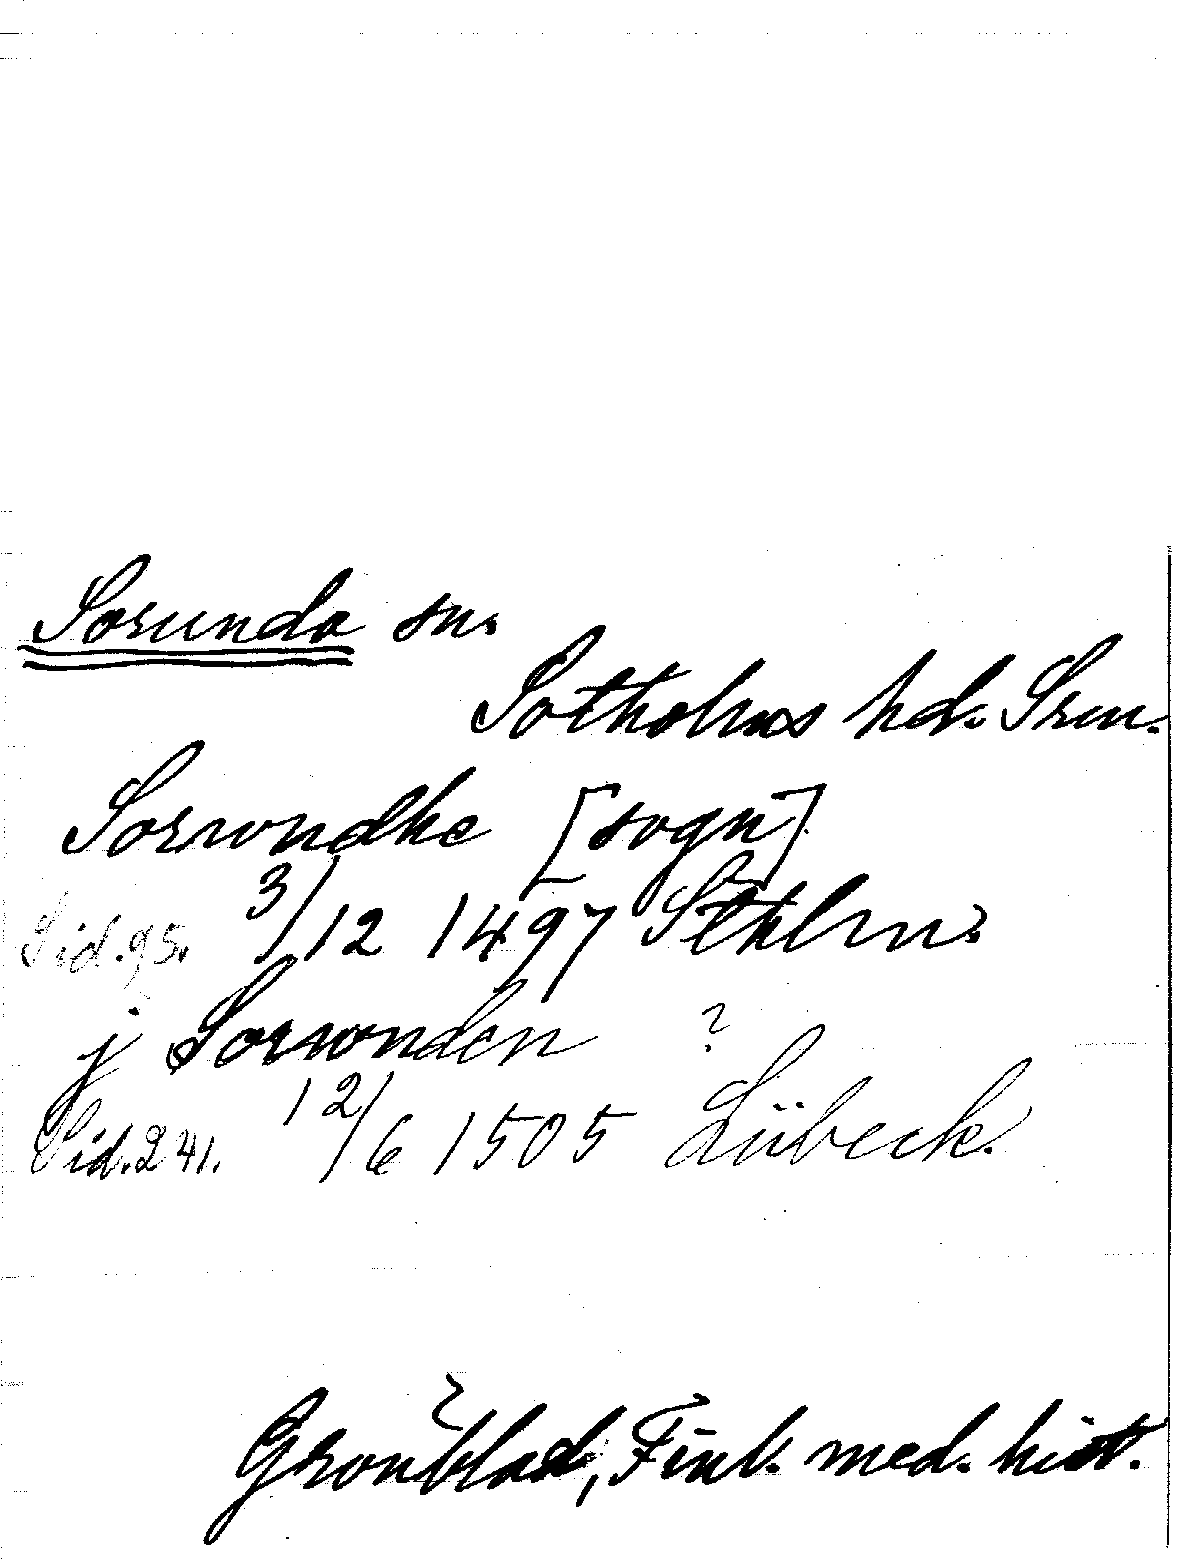 Sorunda sn.
Sotholms hd. Srm.
Sorwondhe [sogn]
Sid. 95. 3/12 1497 Sthlm.
j Sorwonden ?
Sid. 241. 12/6 1505 Lübeck.
Grönblad, Finl. med. hist.